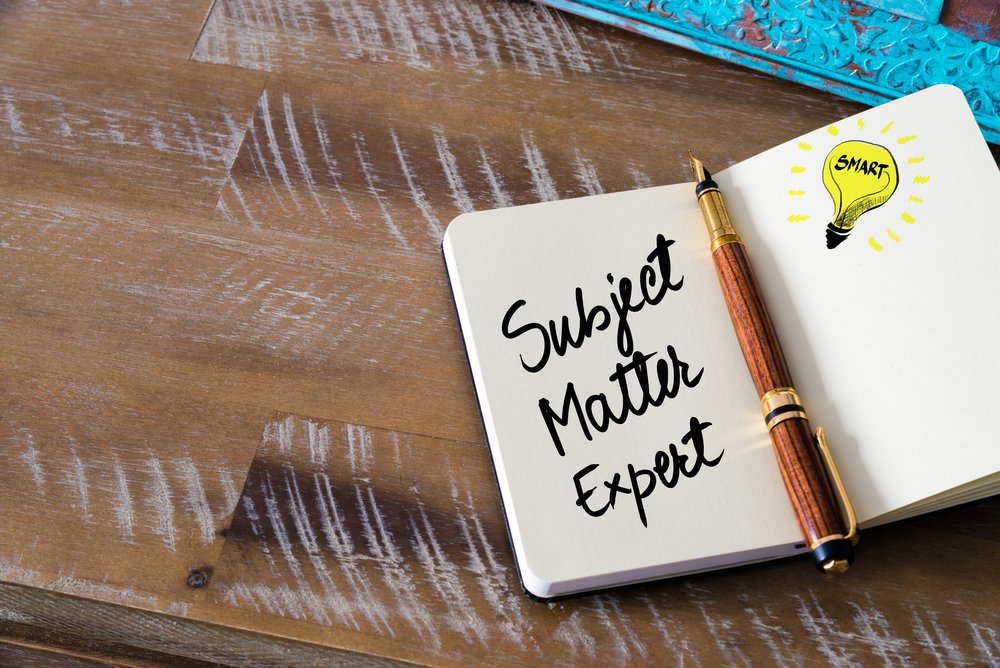 Subject
Matter
Expert
SMART